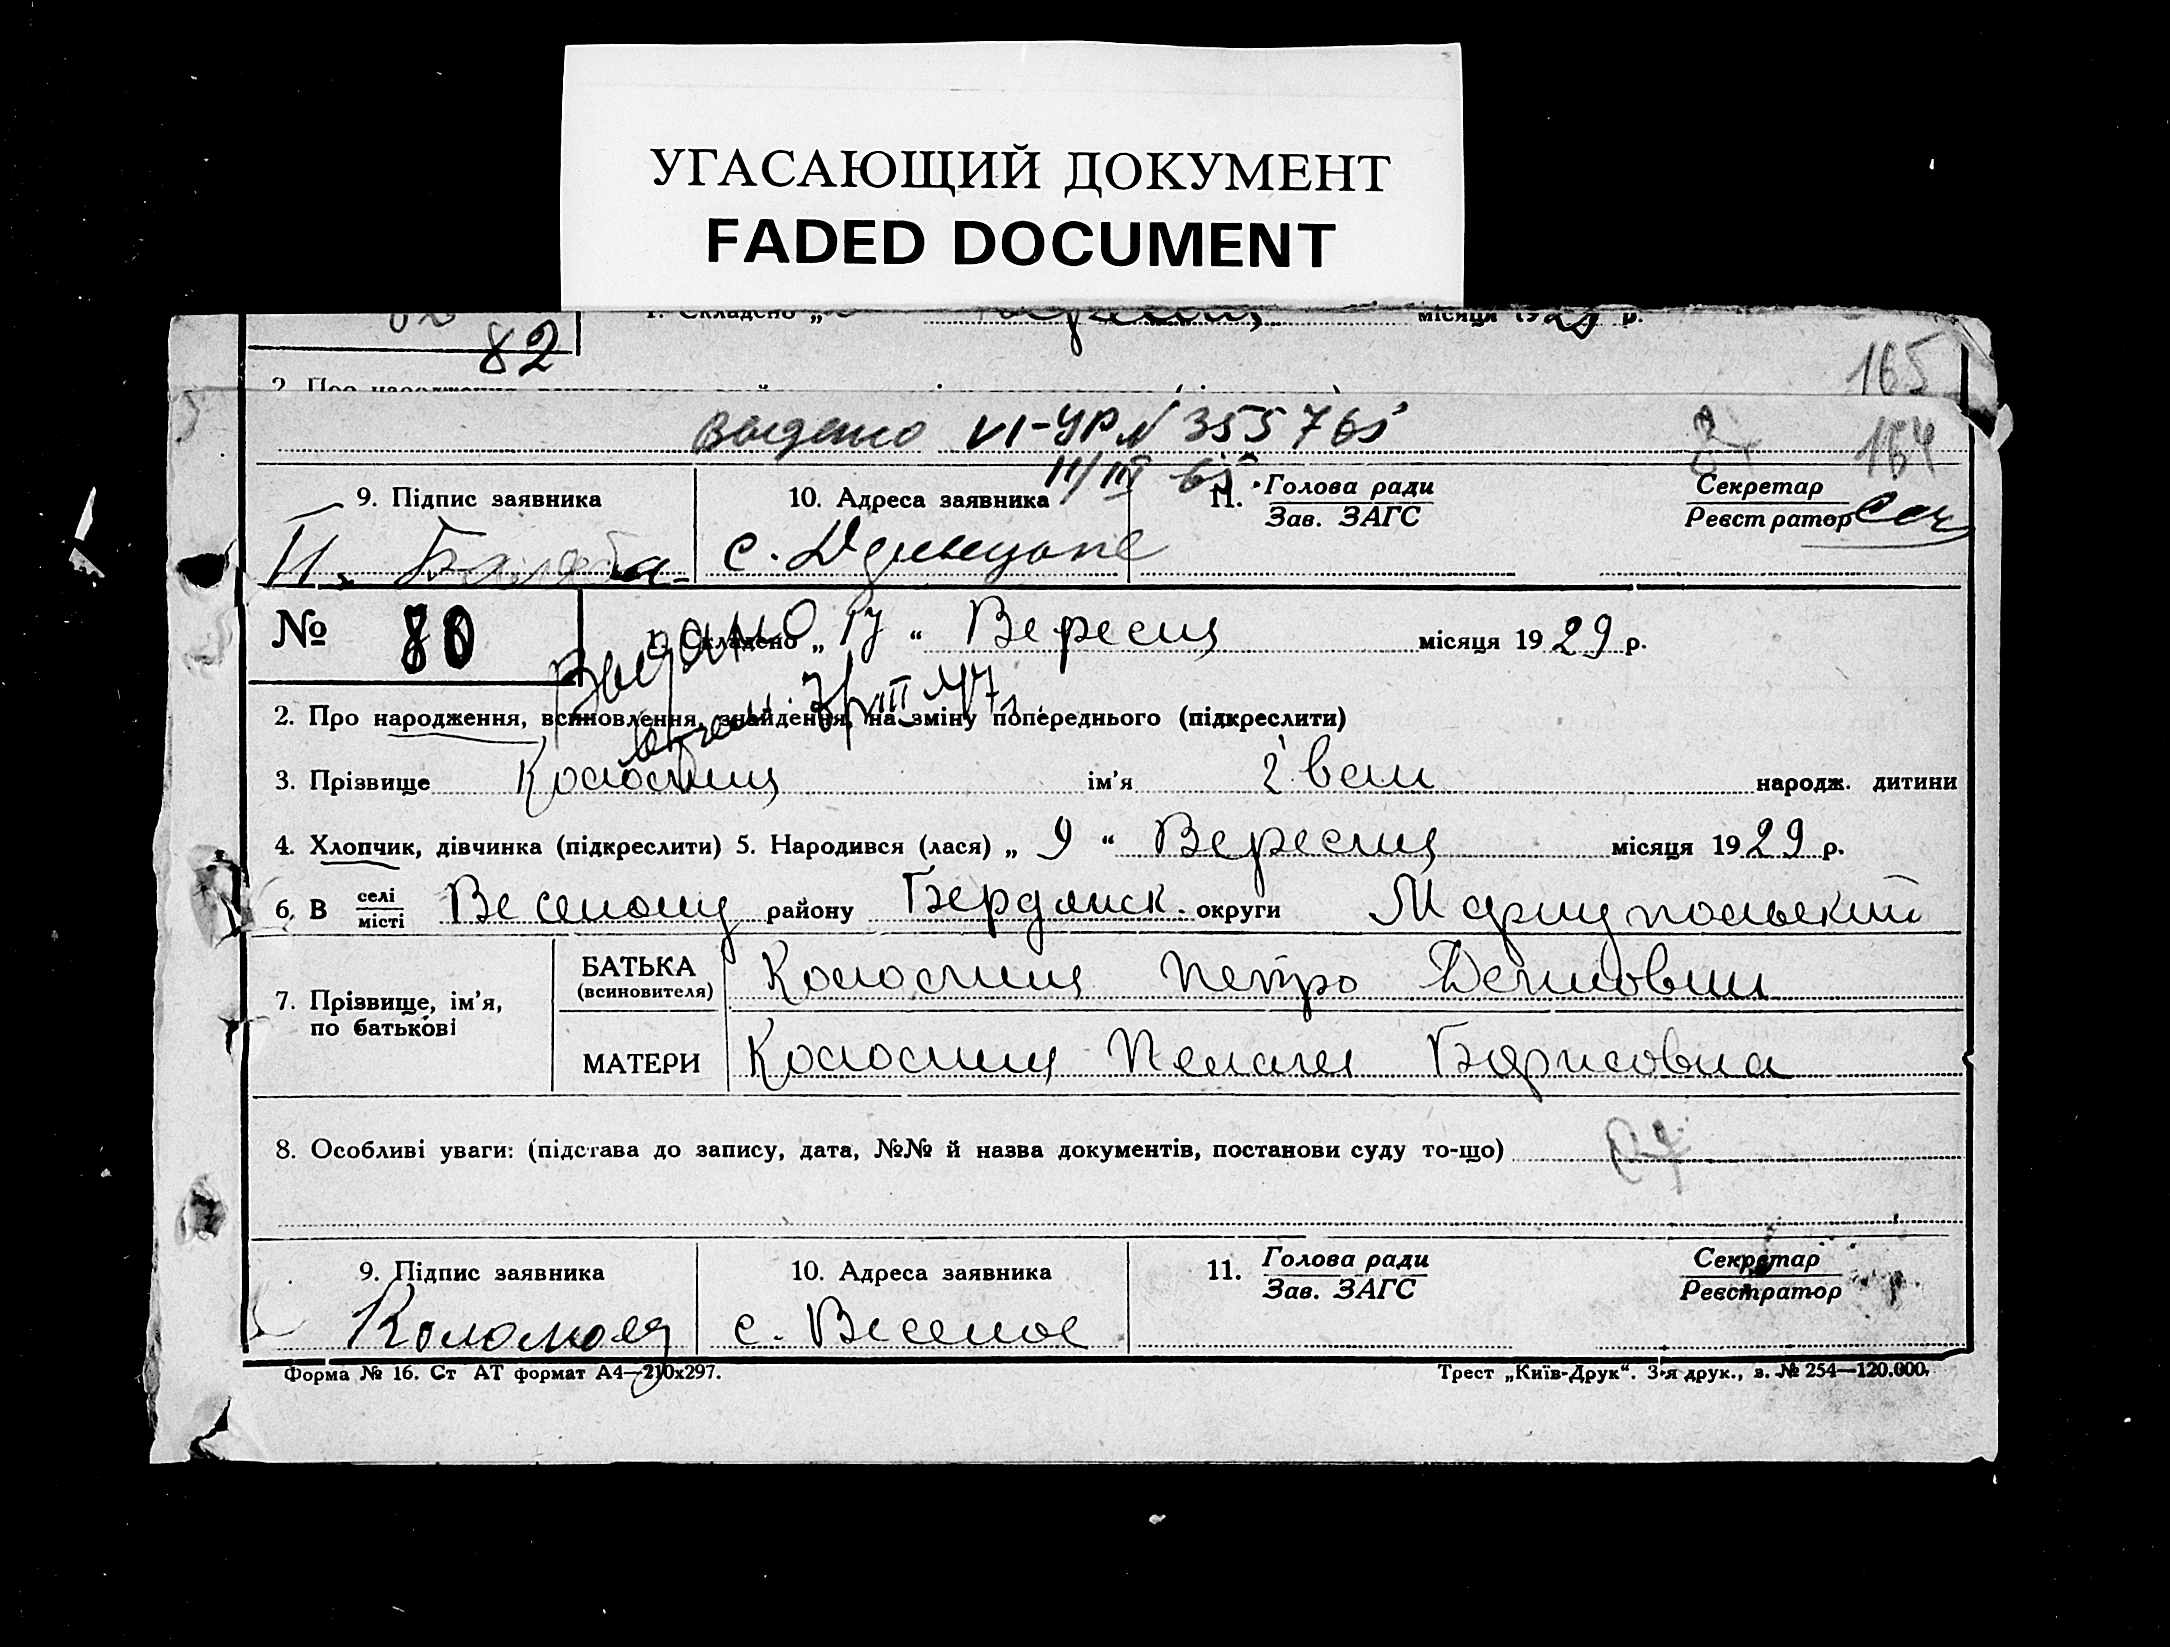 УГАСАЮЩИЙ ДОКУМЕНТ
FADED DOCUMENT
82
1. Складено „ місяця 19 р.
2. Про народження
165
Выдано VI-УР № 355765
164
11/III 65
9. Підпис заявника
10. Адреса заявника
11. Голова ради
Зав. ЗАГС
Секретар
Реєстратор
с.
№ 80
1. Складено „ 17 “ Вересня місяця 1929 р.
Выдано
2. Про народження, всиновлення, знайдення, на зміну попереднього (підкреслити)
3. Прізвище Коломиец ім’я Іван народж. дитини
4. Хлопчик, дівчинка (підкреслити) 5. Народився (лася) „ 9 “ Вересня місяця 1929 р.
6. В селі
місті
Веселому району Бердянск. округи Мариупольский
7. Прізвище, ім’я,
по батькові
БАТЬКА
(всиновителя)
Коломиец Петро
МАТЕРИ
Коломиец Пелагея Борисовна
8. Особливі уваги: (підстава до запису, дата, №№ й назва документів, постанови суду то-що)
9. Підпис заявника
10. Адреса заявника
11. Голова ради
Зав. ЗАГС
Секретар
Реєстратор
с. Веселое
Форма № 16. Ст АТ формат А4—210х297.
Трест „Київ-Друк“. 3-я друк., з. № 254—120.000.